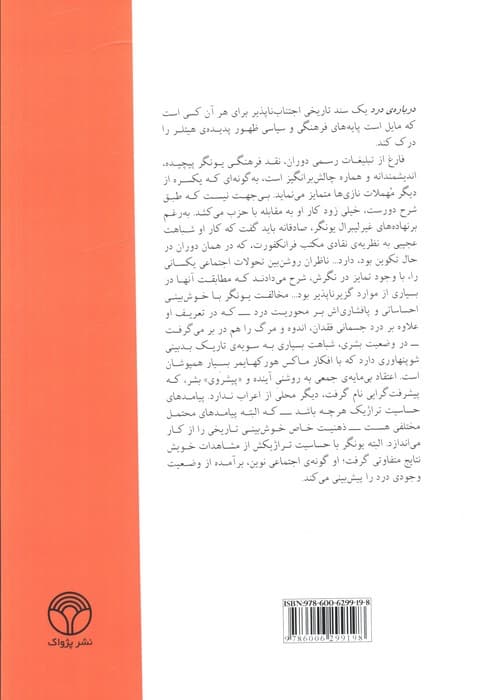 درباره‌ی درد یک سند تاریخی اجتناب‌ناپذیر برای هر آن کسی است
که مایل است پایه‌های فرهنگی و سیاسی ظهور پدیده‌ی هیتلر را
درک کند.
فارغ از تبلیغات رسمی دوران، نقد فرهنگی یونگر پیچیده،
اندیشمندانه و هماره چالش‌برانگیز است، به‌گونه‌ای که یکسره از
دیگر مُهملات نازی‌ها متمایز می‌نماید. بی‌جهت نیست که طبق
شرح دورست، خیلی زود کار او به مقابله با حزب می‌کشد. به‌رغم
برنهاده‌های غیرلیبرال یونگر، صادقانه باید گفت که کار او شباهت
عجیبی به نظریه‌ی نقادی مکتب فرانکفورت، که در همان دوران در
حال تکوین بود، دارد... ناظران روشن‌بین تحولات اجتماعی یکسانی
را، با وجود تمایز در نگرش، شرح می‌دادند که مطابقت آنها در
بسیاری از موارد گزیرناپذیر بود... مخالفت یونگر با خوش‌بینی
احساساتی و پافشاری‌اش بر محوریت درد ــ که در تعریف او
علاوه بر درد جسمانی فقدان، اندوه و مرگ را هم در بر می‌گرفت
ــ در وضعیت بشری، شباهت بسیاری به سویه‌ی تاریک بدبینی
شوپنهاوری دارد که با افکار ماکس هورکهایمر بسیار همپوشان
است. اعتقاد بی‌مایه‌ی جمعی به روشنی آینده و «پیشروی» بشر، که
پیشرفت‌گرایی نام گرفت، دیگر محلی از اعراب ندارد. پیامدهای
حساسیت تراژیک هرچه باشد ــ که البته پیامدهای محتمل
مختلفی هست ــ ذهنیت خاص خوش‌بینی تاریخی را از کار
می‌اندازد. البته یونگر با حساسیت تراژیکش از مشاهدات خویش
نتایج متفاوتی گرفت؛ او گونه‌ی اجتماعی نوین، برآمده از وضعیت
وجودی درد را پیش‌بینی می‌کند.
ISBN:978-600-6299-19-8
9786006299198
نشر پژواک